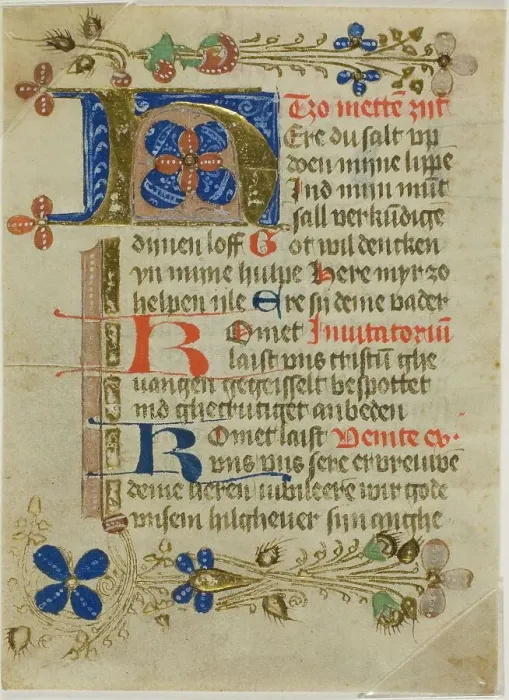 Tzo mettē zijt
HEre du salt vp
doen mijne lippe
Ind mijn mūt
sall verkūdige
dijnen loff Got wil dencken
yn mijne hulpe Here myr zo
helpen ijle Ere sij deme vader
Komet Inuitatoriū
laist vns cristū ghe
uangen gegeisselt bespottet
ind ghecrutiget anbeden
Komet laist Venite ex·
vns vns sere ervreuwē
deme heren iubileere wir gode
vnsem hilgheuer sijn anghe